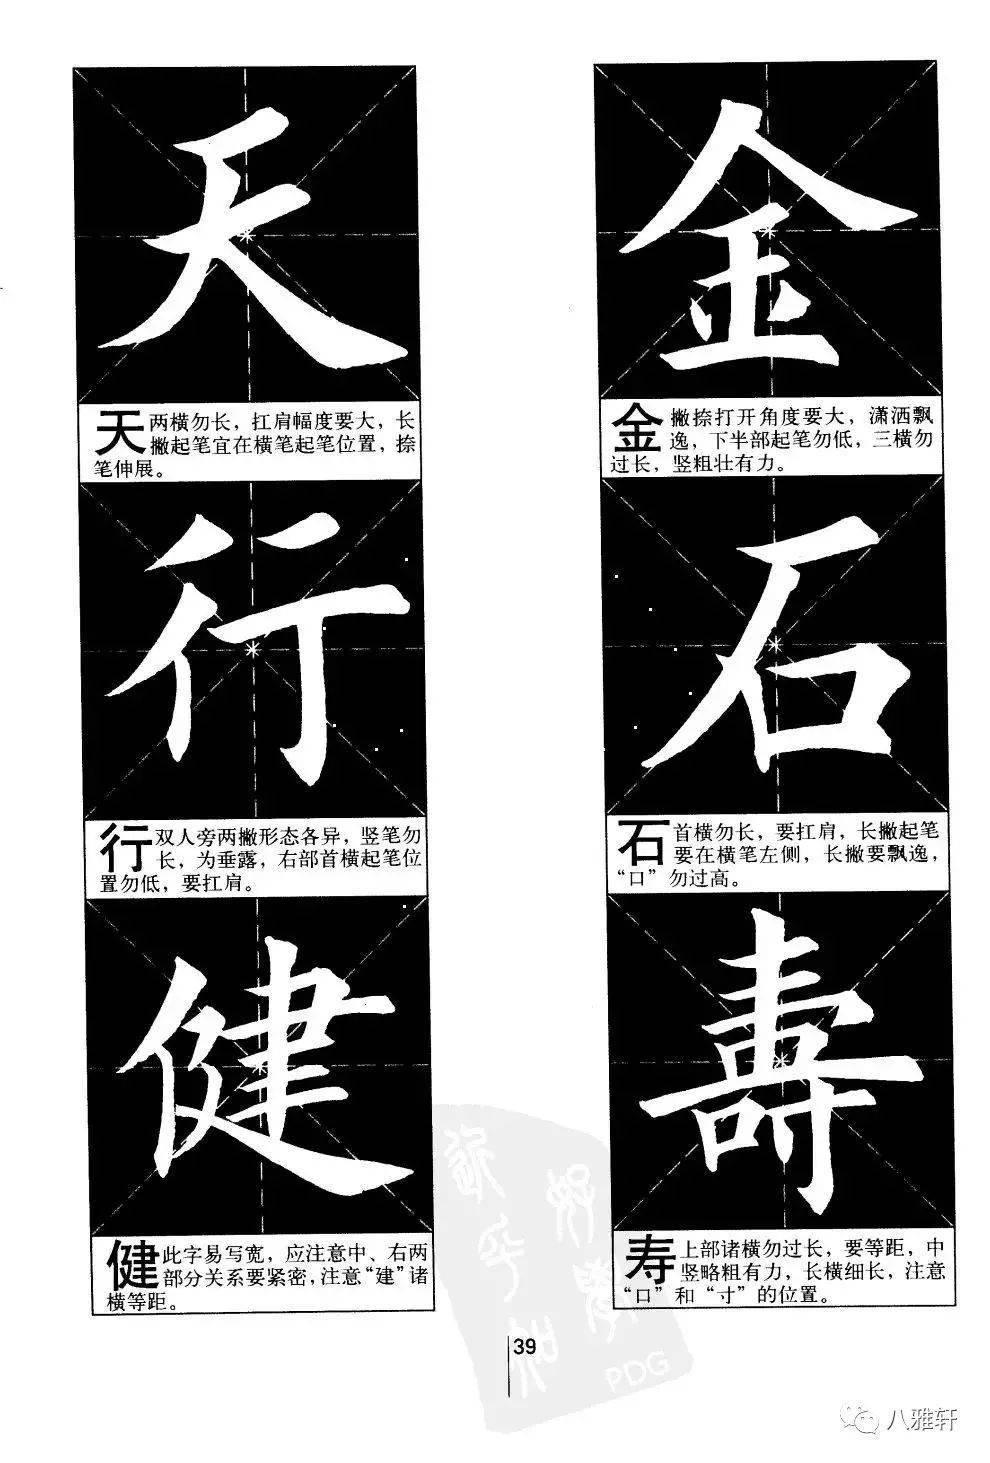 天
天 两横勿长，扛肩幅度要大，长
撇起笔宜在横笔起笔位置，捺
笔伸展。
行
行 双人旁两撇形态各异，竖笔勿
长，为垂露，右部首横起笔位
置勿低，要扛肩。
健
健 此字易写宽，应注意中、右两
部分关系要紧密，注意“建”诸
横等距。
金
金 撇捺打开角度要大，潇洒飘
逸，下半部起笔勿低，三横勿
过长，竖粗壮有力。
石
石 首横勿长，要扛肩，长撇起笔
要在横笔左侧，长撇要飘逸，
“口”勿过高。
壽
寿 上部诸横勿过长，要等距，中
竖略粗有力，长横细长，注意
“口”和“寸”的位置。
39
PDG
八雅轩